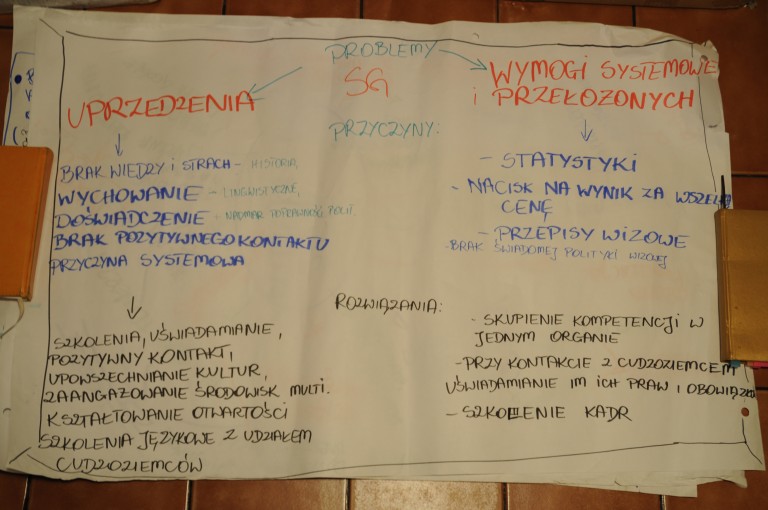 PROBLEMY
SG
UPRZEDZENIA
WYMOGI SYSTEMOWE
i PRZEŁOŻONYCH
PRZYCZYNY:
BRAK WIEDZY i STRACH - HISTORIA,
WYCHOWANIE - LINGWISTYCZNE,
DOŚWIADCZENIE - NADMIAR POPRAWNOŚĆ POLIT.
BRAK POZYTYWNEGO KONTAKTU
PRZYCZYNA SYSTEMOWA
- STATYSTYKI
- NACISK NA WYNIK ZA WSZELKĄ
CENĘ
- PRZEPISY WIZOWE
- BRAK ŚWIADOMEJ POLITYKI WIZOWEJ
ROZWIĄZANIA:
SZKOLENIA, UŚWIADAMIANIE,
POZYTYWNY KONTAKT,
UPOWSZECHNIANIE KULTUR,
ZAANGAŻOWANIE ŚRODOWISK MULTI.
KSZTAŁTOWANIE OTWARTOŚCI
SZKOLENIA JĘZYKOWE Z UDZIAŁEM
CUDZOZIEMCÓW
- SKUPIENIE KOMPETENCJI W
JEDNYM ORGANIE
- PRZY KONTAKCIE Z CUDZOZIEMCEM
UŚWIADAMIANIE IM ICH PRAW I OBOWIĄZKÓW
- SZKOLENIE KADR